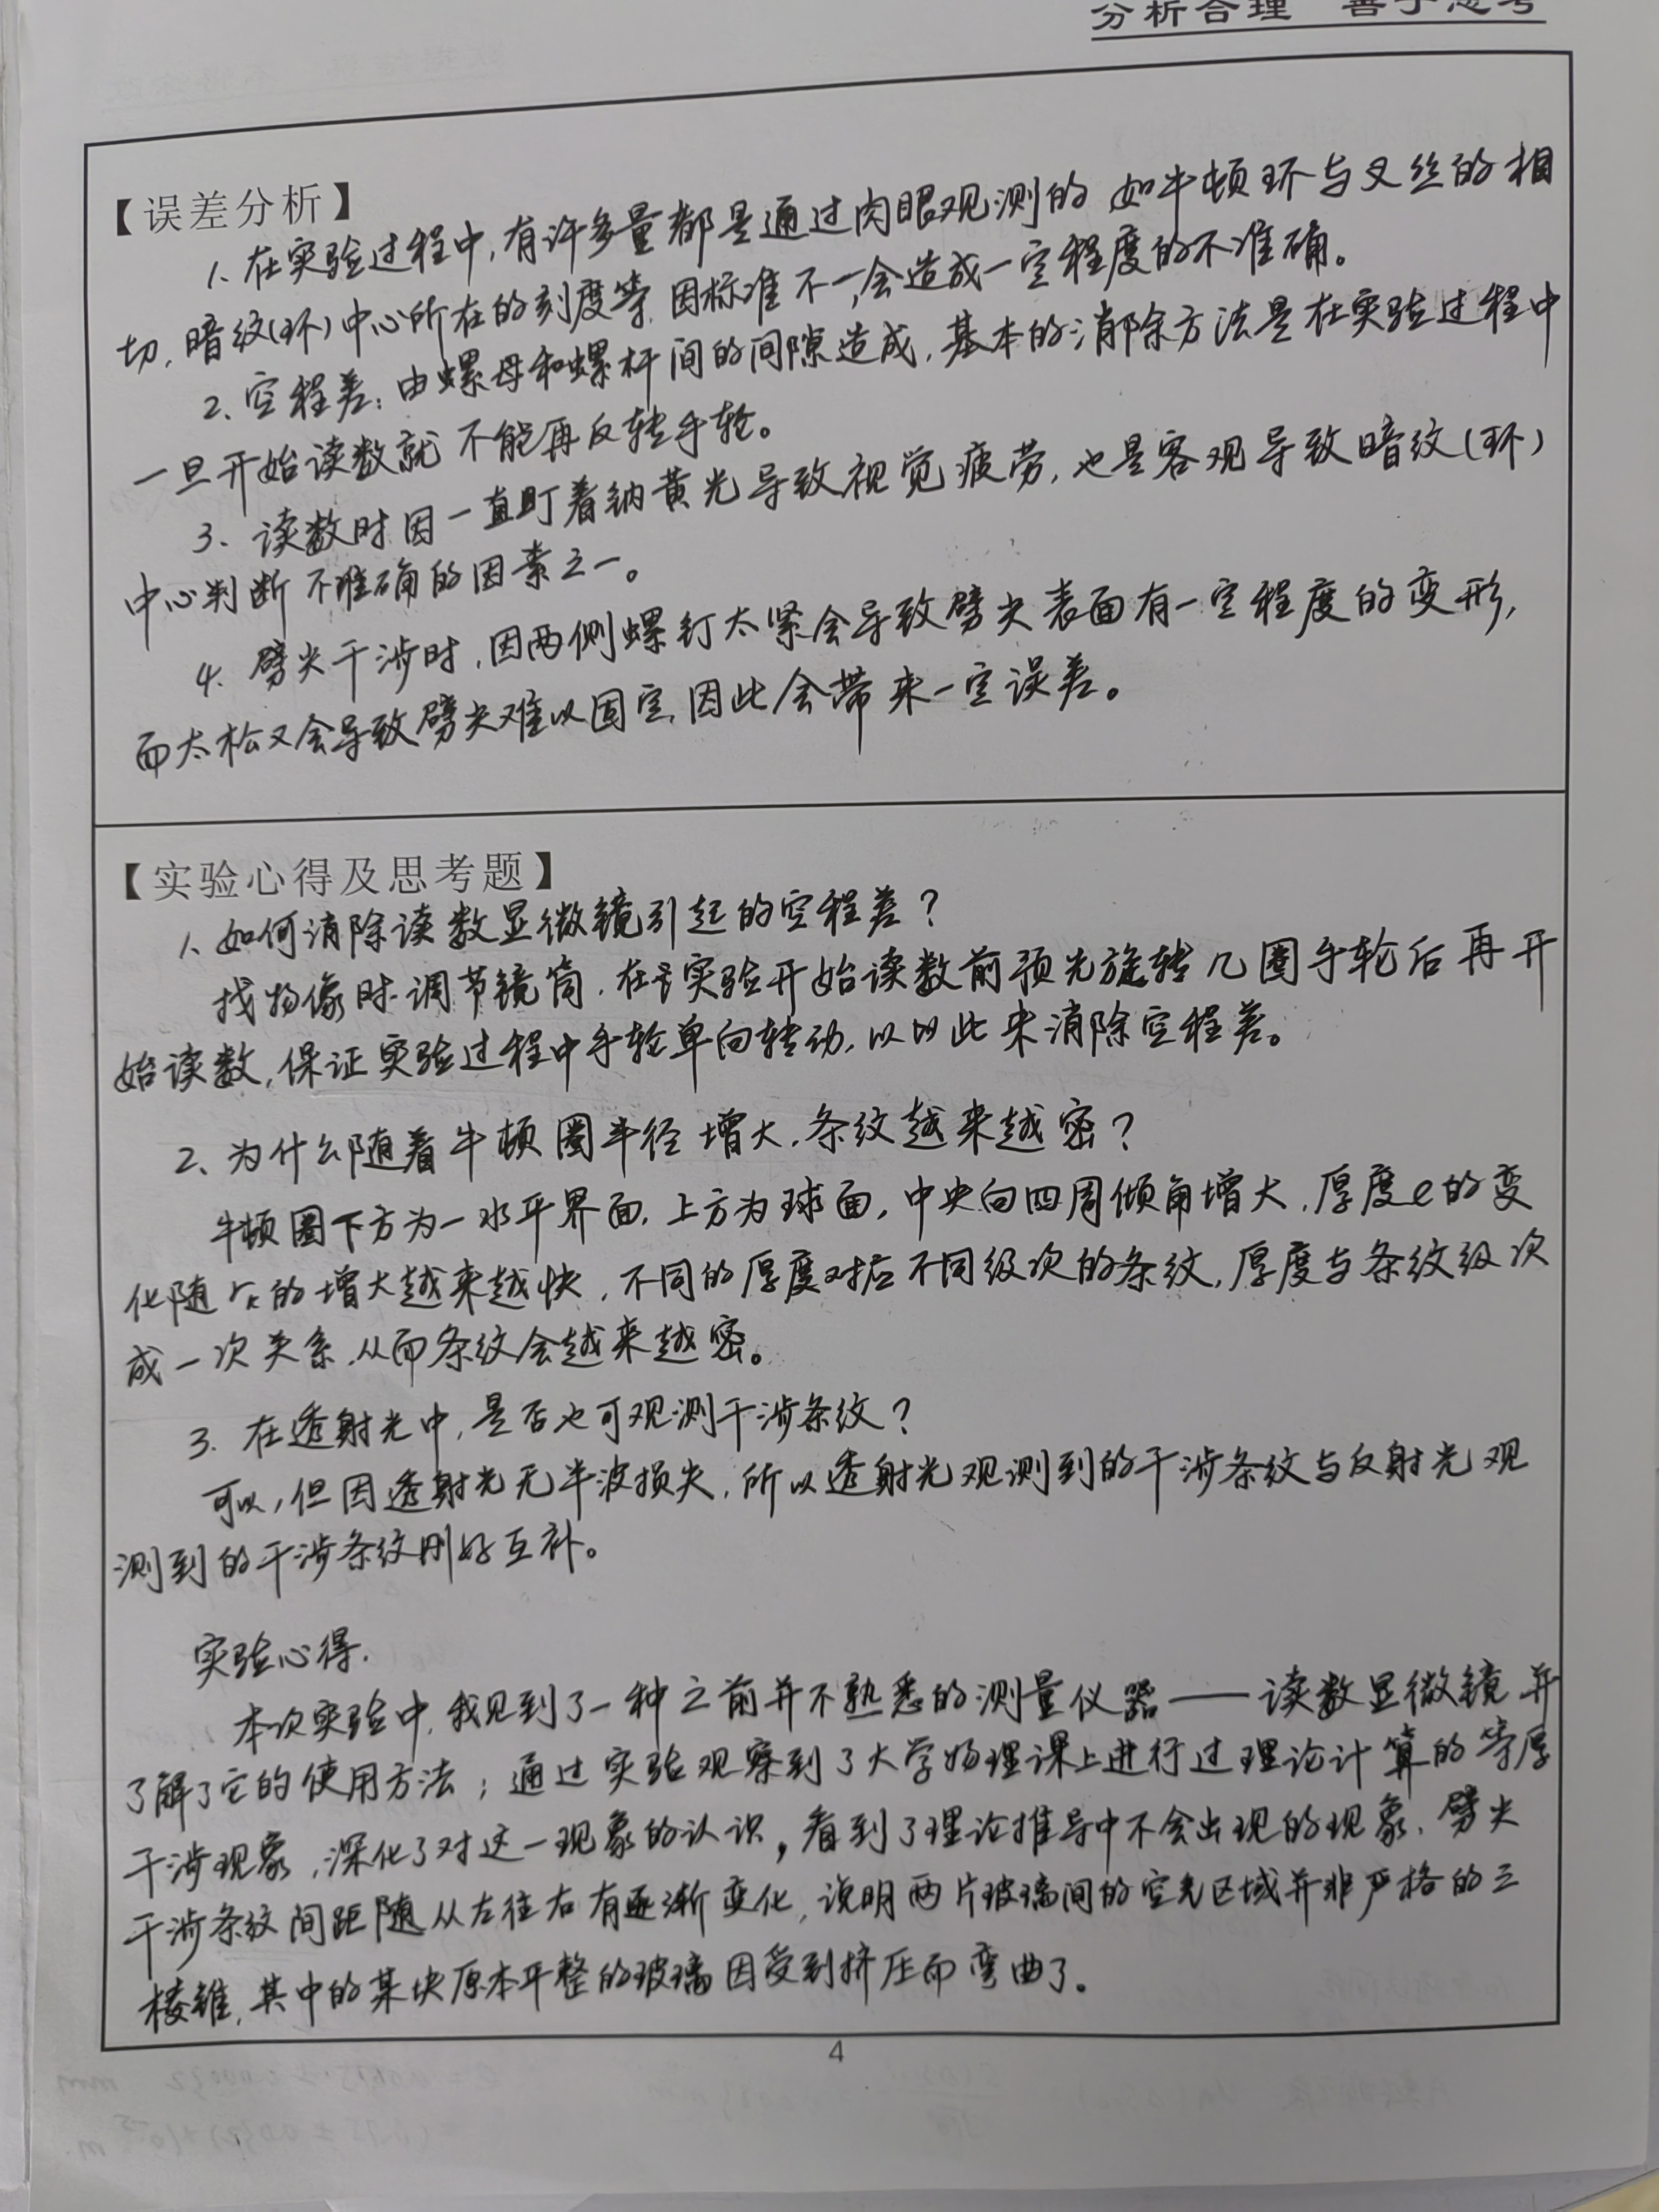 分析合理 善于思考
【误差分析】
1、在实验过程中,有许多量都是通过肉眼观测的 如牛顿环与叉丝的相
切,暗纹(环)中心所在的刻度等,因标准不一,会造成一定程度的不准确。
2、空程差:由螺母和螺杆间的间隙造成,基本的消除方法是在实验过程中
一旦开始读数就不能再反转手轮。
3、读数时因一直盯着钠黄光导致视觉疲劳,也是客观导致暗纹(环)
中心判断不准确的因素之一。
4、劈尖干涉时,因两侧螺钉太紧会导致劈尖表面有一定程度的变形,
而太松又会导致劈尖难以固定,因此会带来一定误差。
【实验心得及思考题】
1、如何消除读数显微镜引起的空程差?
找物像时调节镜筒,在实验开始读数前预先旋转几圈手轮后再开
始读数,保证实验过程中手轮单向转动,以以此来消除空程差。
2、为什么随着牛顿圈半径增大,条纹越来越密?
牛顿圈下方为一水平界面,上方为球面,中央向四周倾角增大,厚度e的变
化随rₖ的增大越来越快,不同的厚度对应不同级次的条纹,厚度与条纹级次
成一次关系,从而条纹会越来越密。
3、在透射光中,是否也可观测干涉条纹?
可以,但因透射光无半波损失,所以透射光观测到的干涉条纹与反射光观
测到的干涉条纹刚好互补。
实验心得.
本次实验中,我见到了一种之前并不熟悉的测量仪器——读数显微镜并
了解了它的使用方法;通过实验观察到了大学物理课上进行过理论计算的等厚
干涉现象,深化了对这一现象的认识,看到了理论推导中不会出现的现象,劈尖
干涉条纹间距随从左往右有逐渐变化,说明两片玻璃间的空气区域并非严格的三
棱锥,其中的某块原本平整的玻璃因受到挤压而弯曲了。
4